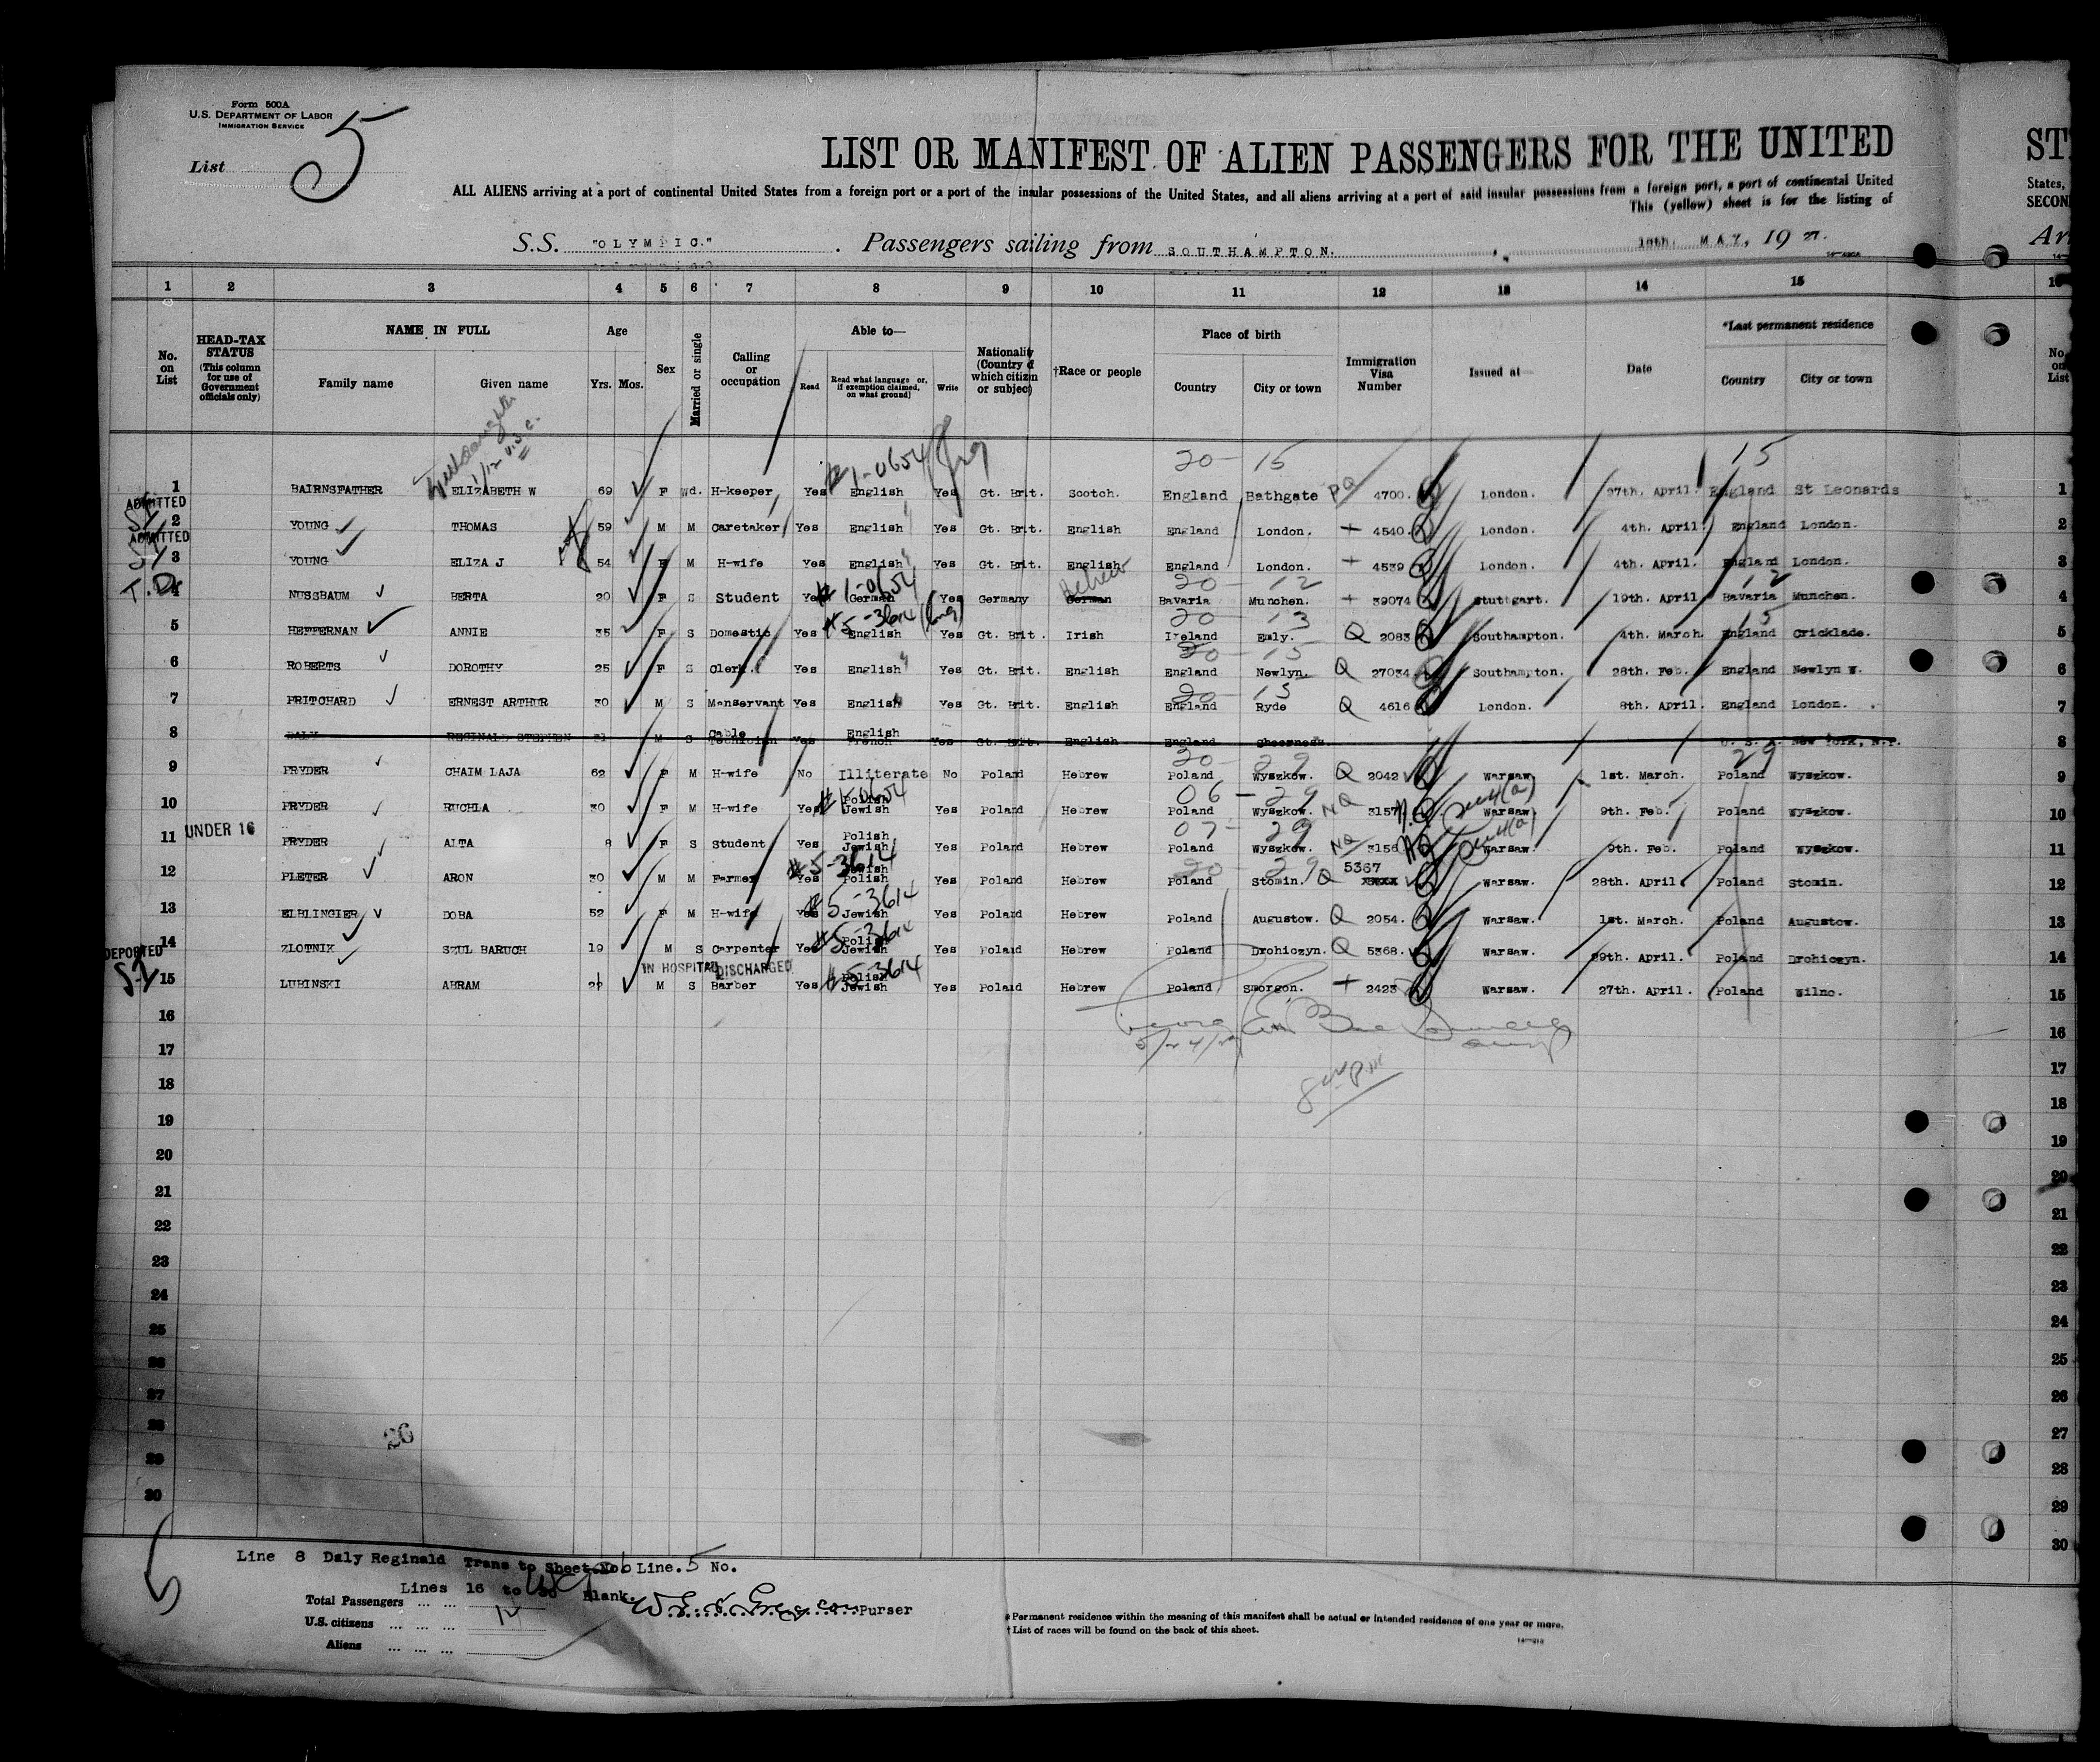 Form 500A
U.S. DEPARTMENT OF LABOR
IMMIGRATION SERVICE
List 5
LIST OR MANIFEST OF ALIEN PASSENGERS FOR THE UNITED
ST
ALL ALIENS arriving at a port of continental United States from a foreign port or a port of the insular possessions of the United States, and all aliens arriving at a port of said insular possessions from a foreign port, a port of continental United
States,
This (yellow) sheet is for the listing of
SECON
S.S. "OLYMPIC." . Passengers sailing from SOUTHAMPTON. 18th. MAY, 19 27.
Arr
1 2 3 4 5 6 7 8 9 10 11 12 13 14 15
No. on List
HEAD-TAX STATUS (This column for use of Government officials only)
NAME IN FULL
Family name
Given name
Age
Yrs. Mos.
Sex
Married or single
Calling or occupation
Able to—
Read
Read what language or, if exemption claimed, on what ground
Write
Nationality (Country of which citizen or subject)
†Race or people
Place of birth
Country
City or town
Immigration Visa Number
Issued at
Date
*Last permanent residence
Country
City or town
No. on List
1-0654
20-15 15
1 BAIRNSFATHER ELIZABETH W 69 F Wd. H-keeper Yes English Yes Gt. Brit. Scotch. England Bathgate 4700. London. 27th. April. England St Leonards 1
ADMITTED
2 YOUNG THOMAS 59 M M Caretaker Yes English Yes Gt. Brit. English England London. 4540. London. 4th. April. England London. 2
ADMITTED
3 YOUNG ELIZA J 54 F M H-wife Yes English Yes Gt. Brit. English England London. 4539 London. 4th. April. England London. 3
1-0654 Hebrew 20-12 12
4 NUSSBAUM BERTA 20 F S Student Yes German Yes Germany German Bavaria Munchen. 39074 Stuttgart. 19th. April Bavaria Munchen. 4
#5-3614 20-13 15
5 HEFFERNAN ANNIE 35 F S Domestic Yes English Yes Gt. Brit. Irish Ireland Emly. Q 2083 Southampton. 4th. March. England Cricklade. 5
20-15
6 ROBERTS DOROTHY 25 F S Clerk. Yes English Yes Gt. Brit. English England Newlyn. Q 27034 Southampton. 28th. Feb. England Newlyn W. 6
20-15
7 PRITCHARD ERNEST ARTHUR 30 M S Manservant Yes English Yes Gt. Brit. English England Ryde Q 4616 London. 8th. April. England London. 7
8 DALY REGINALD STEPHEN 31 M S Cable Technician Yes English French Yes Gt. Brit. English England Sheerness. U. S. A. New York, N.Y. 8
20-29 29
9 PRYDER CHAIM LAJA 62 F M H-wife No Illiterate No Poland Hebrew Poland Wyszkow. Q 2042 Warsaw 1st. March. Poland Wyszkow. 9
1-0654 06-29
10 PRYDER RUCHLA 30 F M H-wife Yes Polish Jewish Yes Poland Hebrew Poland Wyszkow. NQ 3157 Warsaw 9th. Feb. Poland Wyszkow. 10
UNDER 16
07-29
11 PRYDER ALTA 8 F S Student Yes Polish Jewish Yes Poland Hebrew Poland Wyszkow. NQ 3156 Warsaw. 9th. Feb. Poland Wyszkow. 11
#5-3614 20-29
12 PLETER ARON 30 M M Farmer Yes Jewish Polish Yes Poland Hebrew Poland Stomin. Q 5367 Warsaw. 28th. April. Poland Stomin. 12
#5-3614
13 ELBLINGIER DOBA 52 F M H-wife Yes Jewish Yes Poland Hebrew Poland Augustow. Q 2054. Warsaw. 1st. March. Poland Augustow. 13
#5-3614
14 ZLOTNIK SZUL BARUCH 19 M S Carpenter Yes Polish Jewish Yes Poland Hebrew Poland Drohiczyn. Q 5368. Warsaw. 29th. April. Poland Drohiczyn. 14
DEPORTED
IN HOSPITAL DISCHARGED #5-3614
15 LUBINSKI ABRAM 22 M S Barber Yes Polish Jewish Yes Poland Hebrew Poland Smorgon. 2423 Warsaw. 27th. April. Poland Wilno. 15
16 16
17 17
18 18
19 19
20 20
21 21
22 22
23 23
24 24
25 25
26 26
27 27
28 28
29 29
30 30
26
Line 8 Daly Reginald Trans to Sheet No 6 Line. 5 No.
Lines 16 to 30 Blank.
Total Passengers ... ... 14
U.S. citizens ... ... ...
Aliens ... ... ...
Purser
*Permanent residence within the meaning of this manifest shall be actual or intended residence of one year or more.
†List of races will be found on the back of this sheet.